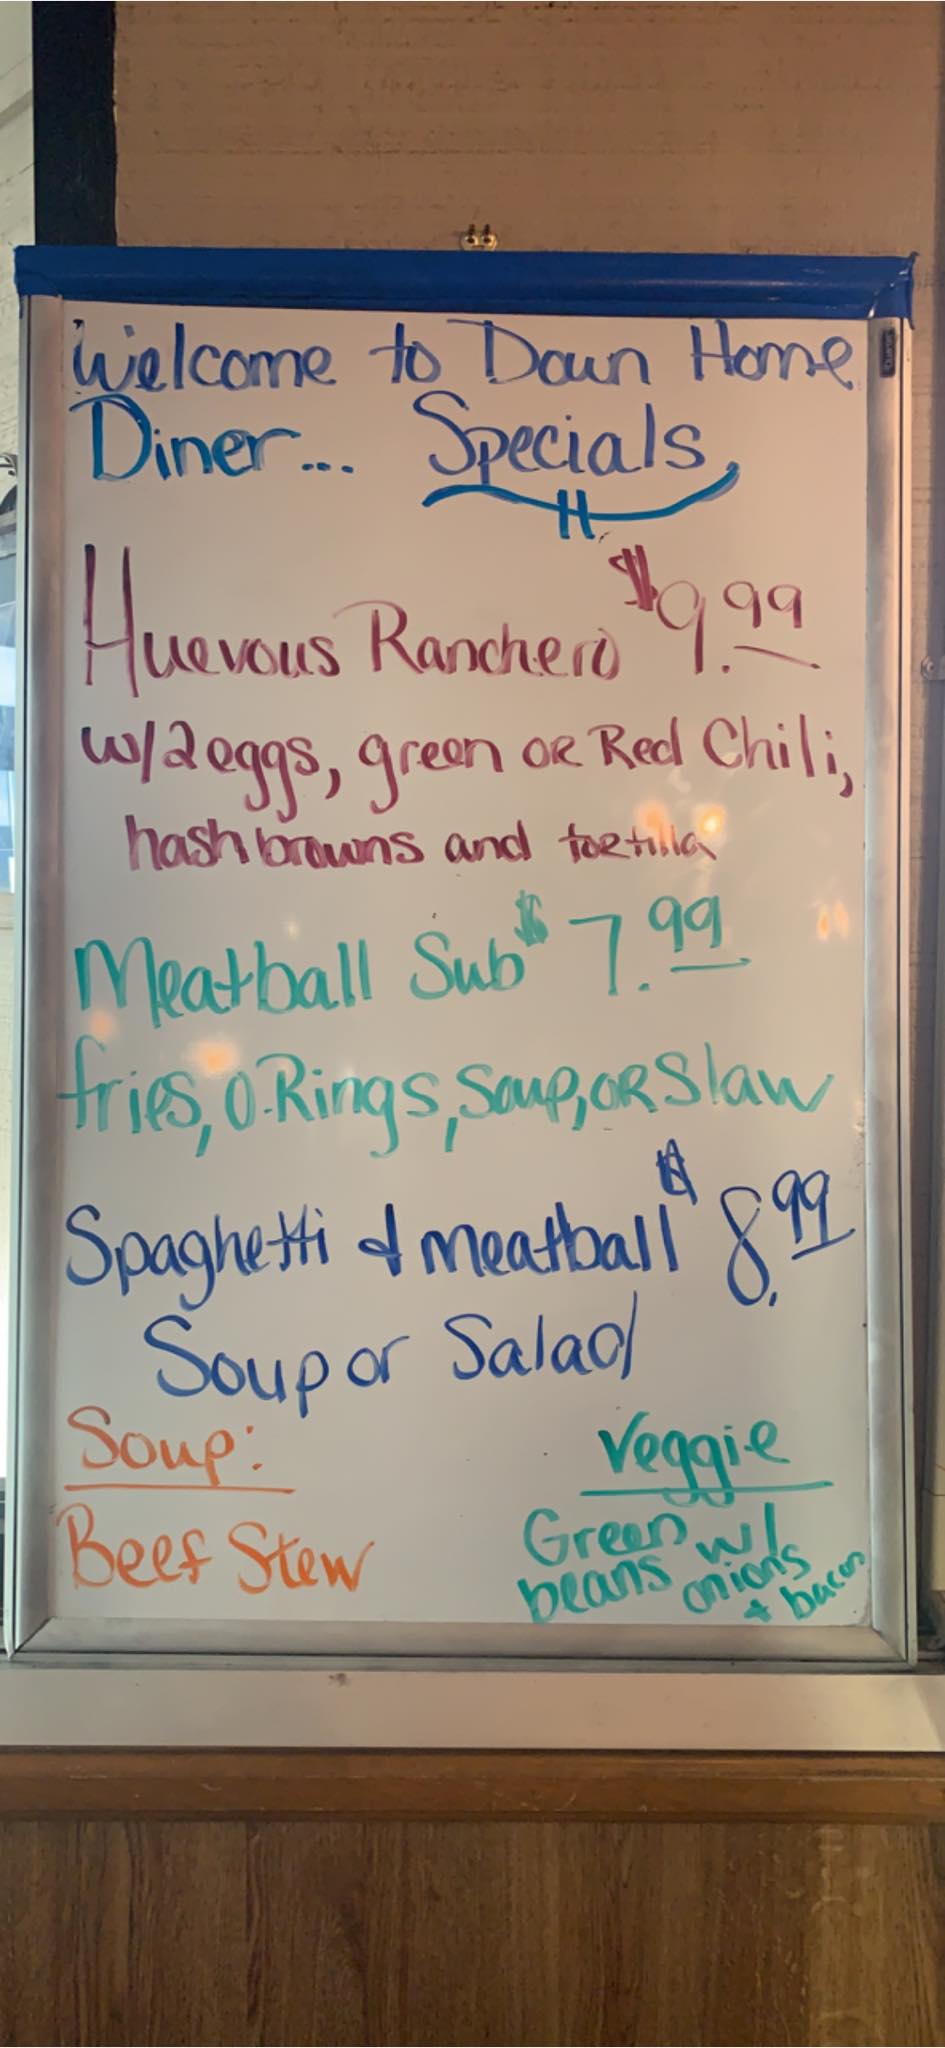 Welcome to Down Home
Diner... Specials
Huevous Ranchero $9.99
w/2 eggs, green or Red Chili,
hashbrowns and tortilla
Meatball Sub $7.99
fries, O-Rings, Soup, or Slaw
Spaghetti & meatball $8.99
Soup or Salad
Soup:
Beef Stew
Veggie
Green w/
beans onions
+ bacon